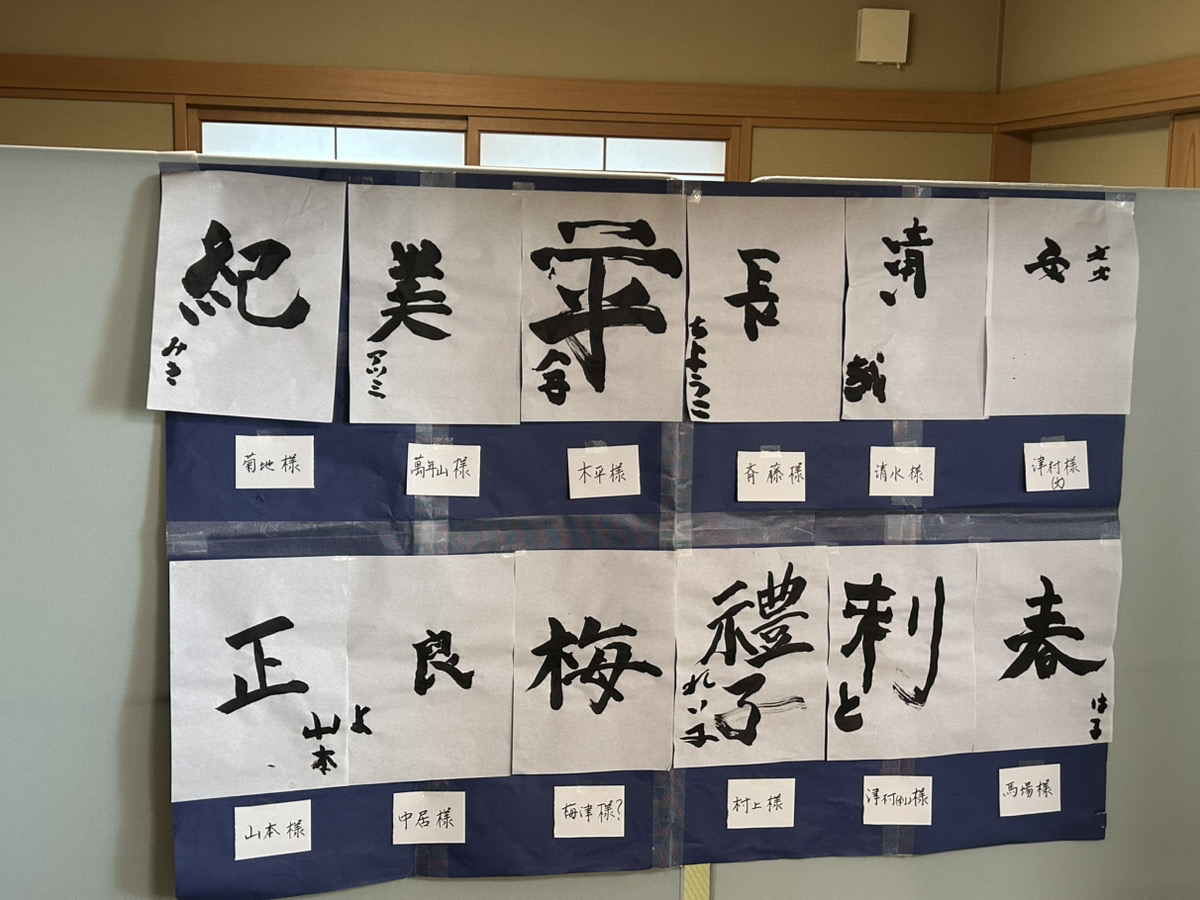 紀
みき
美
マツミ
平
令子
長
ちようこ
清
哉
文
文
菊地様
萬年山様
木平様
斉藤様
清水様
津村様
(文)
正
山本
良
よ
梅
禮子
れい子
利
と
春
はる
山本様
中居様
梅津様?
村上様
津村(利)様
馬場様